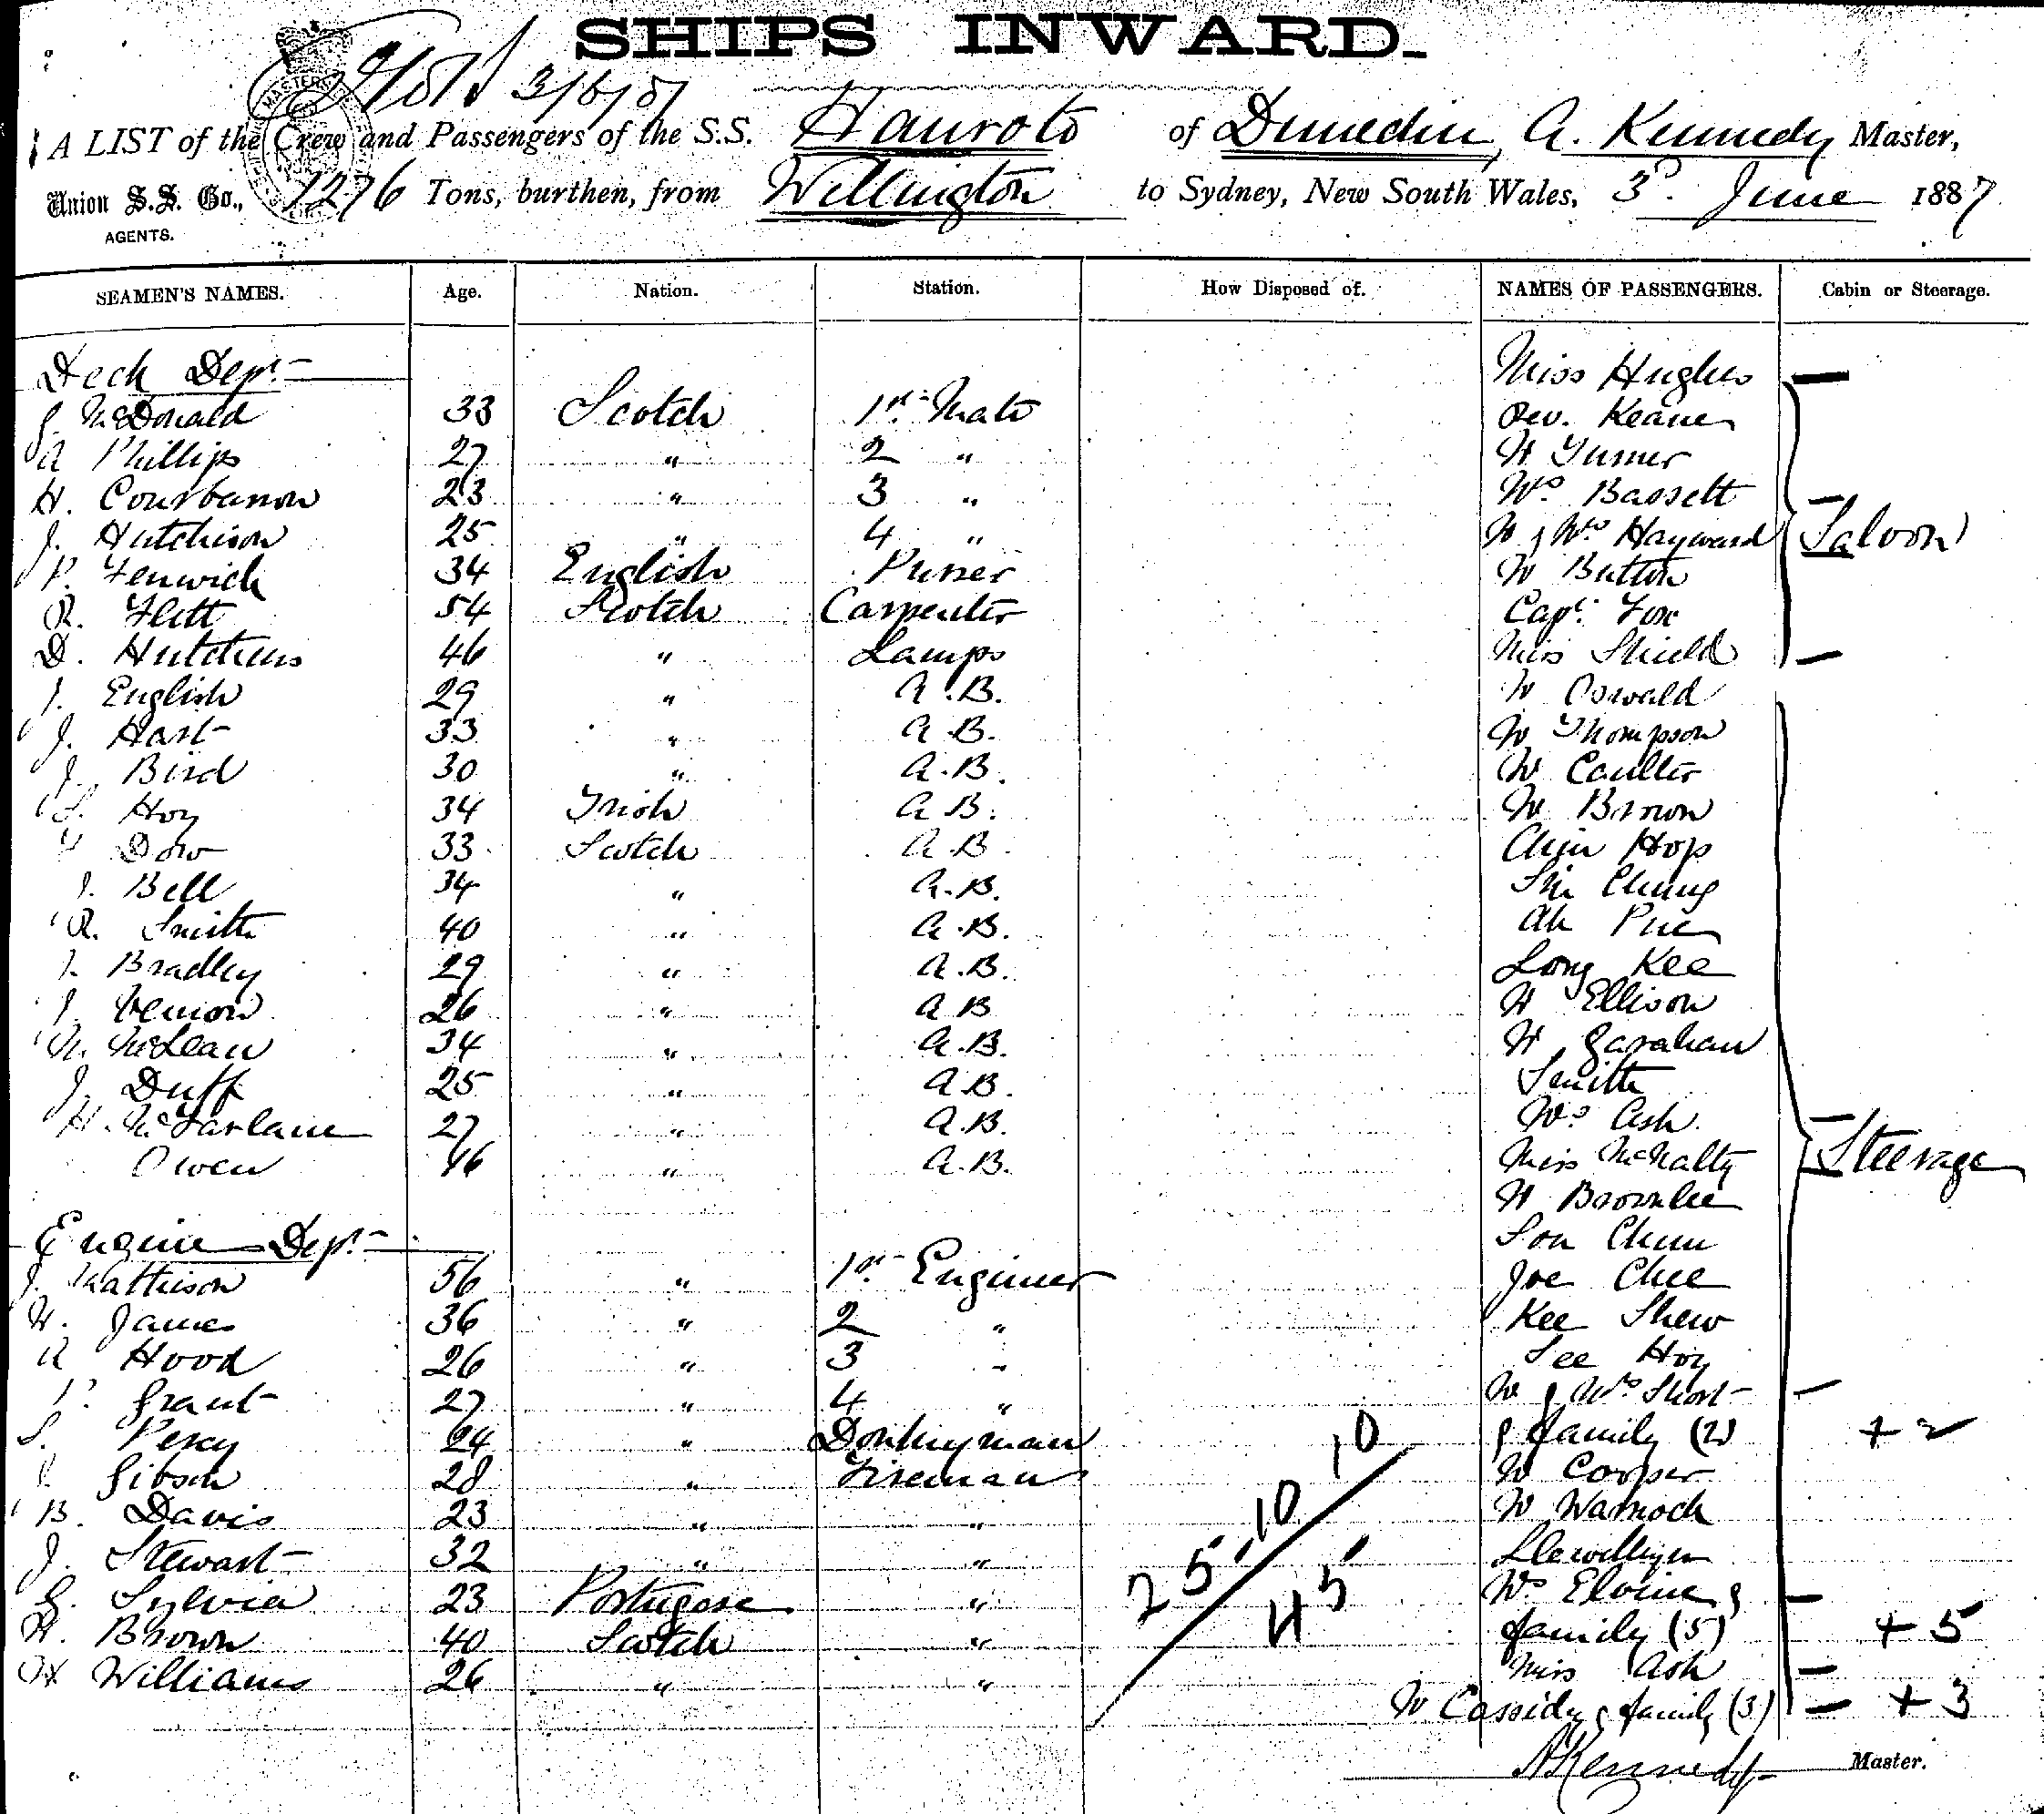 SHIPS INWARD.
3/6/87
A LIST of the Crew and Passengers of the S.S. Hauroto of Dunedin, A. Kennedy Master,
Union S.S. Co., 1276 Tons, burthen, from Wellington to Sydney, New South Wales, 3d. June 1887
AGENTS.
SEAMEN'S NAMES. Age. Nation. Station. How Disposed of. NAMES OF PASSENGERS. Cabin or Steerage.
Deck Dept Miss Hughes
J. McDonald 33 Scotch 1st Mate Rev. Keane
A Phillips 27 " 2 " Mr Turner
H. Courbarron 23 " 3 " Mrs Bassett
J. Hutchison 25 " 4 " Mr & Mrs Hayward Saloon
P. Fenwick 34 English Purser Mr Button
R. Flett 54 Scotch Carpenter Capt. Fox
D. Hutchens 46 " Lamps Miss Shield
J. English 29 " A.B. Mr Oswald
J. Hart 33 " A.B. Mr Thompson
J. Bird 30 " A.B. Mr Coulter
Hoy 34 Irish A.B. Mr Brown
Dow 33 Scotch A.B. Chin Hop
J. Bell 34 " A.B. Chung
R. Smith 40 " A.B. Ah Pue
J. Bradley 29 " A.B. Long Kee
J. Venion 26 " A B Mr Ellison
N. McLean 34 " A.B. Mr Garahan
J. Duff 25 " A.B. Smith
H. McFarlane 27 " A.B. Mrs Ash.
Owen 46 " A.B. Miss McNalty Steerage
Mr Brownlee
Engine Dept Son Chun
J. Mathieson 56 " 1st Engineer Joe Chee
W. James 36 " 2 " Kee Shew
A Hood 26 " 3 " See Hoy
P. Grant 27 " 4 " Mr & Mrs Short
S. Percy 24 " Donkeyman & family (2) + 2
J. Gibson 28 " Fireman Mr Cooper
B. Davis 23 " " Mr Warnock
J. Stewart 32 " " Llewellyn
G. Sylvia 23 Portugese " Mrs Eloine &
H. Brown 40 Scotch " family (5) + 5
H Williams 26 " " Miss Ash
25, 10, 10
45
Mr Cassidy & family (3) + 3
AKennedy Master.